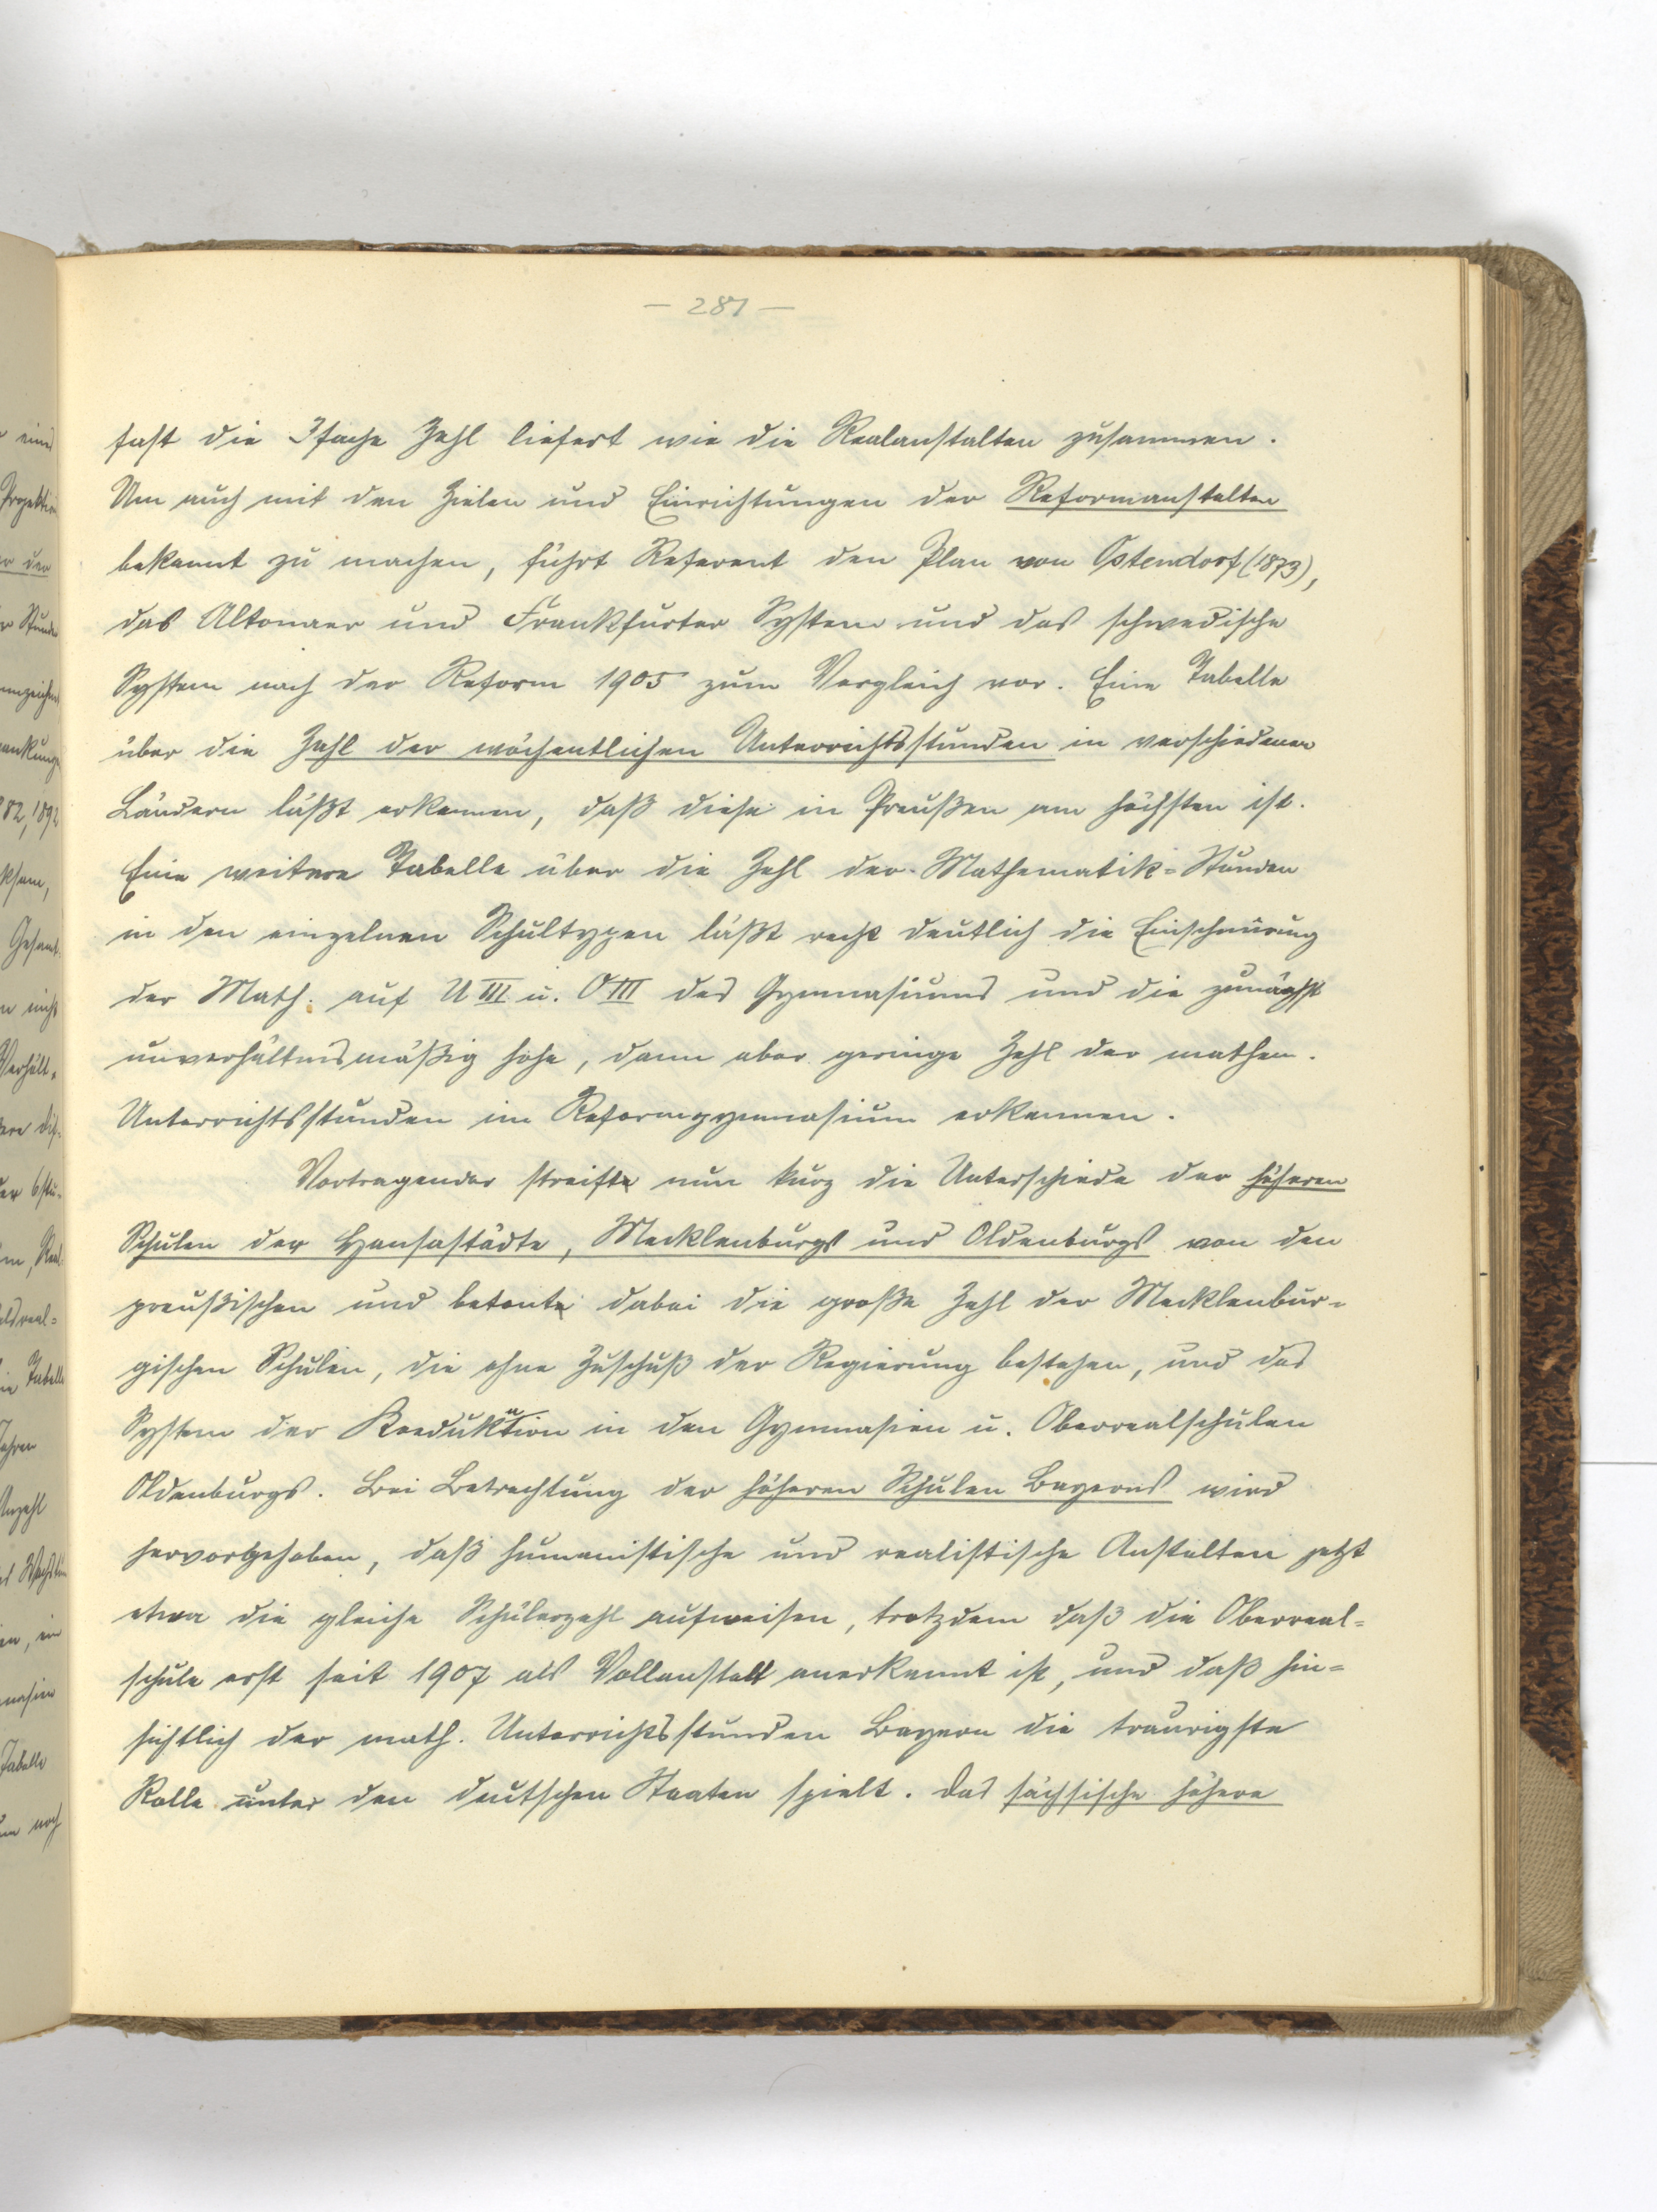 — 281 —
fast die 3fache Zahl liefert wie die Realanstalten zusammen.
Um auch mit den Zielen und Einrichtungen der Reformanstalten
bekannt zu machen, führt Referent den Plan von Ostendorf (1873),
das Altonaer und Frankfurter System und das schwedische
System nach der Reform 1905 zum Vergleich vor. Eine Tabelle
über die Zahl der wöchentlichen Unterrichtsstunden in verschiedenen
Ländern läßt erkennen, daß diese in Preußen am höchsten ist.
Eine weitere Tabelle über die Zahl der Mathematik-Stunden
in den einzelnen Schultypen läßt recht deutlich die Einschnürung
der Math. auf U III u. O III des Gymnasiums und die zunächst
unverhältnismäßig hohe, dann aber geringe Zahl der mathem.
Unterrichtsstunden im Reformgymnasium erkennen.
Vortragender streifte nun kurz die Unterschiede der höheren
Schulen der Hansastädte, Mecklenburgs und Oldenburgs von den
preußischen und betonte dabei die große Zahl der Mecklenbur-
gischen Schulen, die ohne Zuschuß der Regierung bestehen, und das
System der Koedukation in den Gymnasien u. Oberrealschulen
Oldenburgs. Bei Betrachtung der höheren Schulen Bayerns wird
hervorgehoben, daß humanistische und realistische Anstalten jetzt
etwa die gleiche Schülerzahl aufweisen, trotzdem daß die Oberreal-
schule erst seit 1907 als Vollanstalt anerkannt ist, und daß hin-
sichtlich der math. Unterrichtsstunden Bayern die traurigste
Rolle unter den deutschen Staaten spielt. Das sächsische höhere